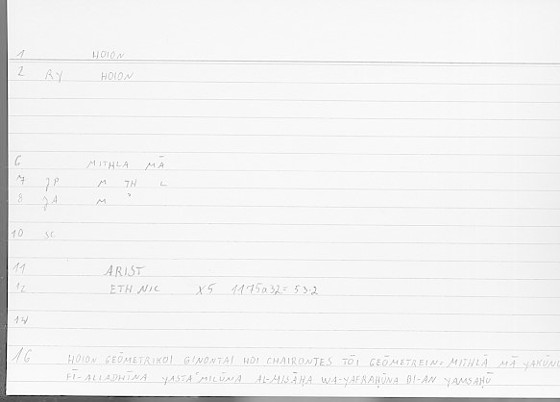 1 HOION
2 RY HOION
6 MITHLA MĀ
7 JP M TH L
8 JA M
10 SC
11 ARIST
12 ETH NIC X5 1175a32= 53.2
14
16 HOION GEŌMETRIKOI GINONTAI HOI CHAIRONTES TŌI GEŌMETREIN. MITHLA MĀ YAKŪNU
FĪ-ALLADHĪNA YASTAʿMILŪNA AL-MISĀḤA WA-YAFRAḤŪNA BI-AN YAMSAḤŪ